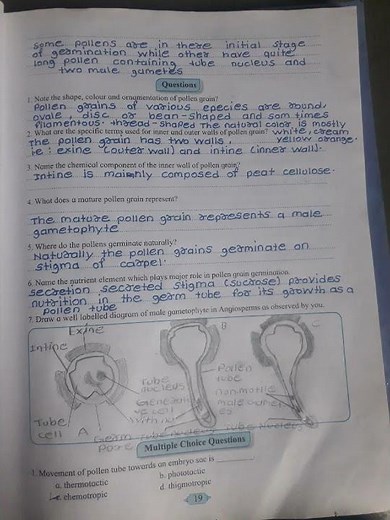 some pollens are in there initial stage
of germination while other have quite
long pollen containing tube nucleus and
two male gametes
Questions
1. Note the shape, colour and ornamentation of pollen grain?
Pollen grains of various species are round,
ovale, disc or bean-shaped and som times
filamentous. thread-shaped The natural color is mostly
2. What are the specific terms used for inner and outer walls of pollen grain? white, cream
the pollen grain has two walls, yellow orange.
ie: exine (outer wall) and intine (inner wall).
3. Name the chemical component of the inner wall of pollen grain?
Intine is mainly composed of peat cellulose.
4. What does a mature pollen grain represent?
The mature pollen grain represents a male
gametophyte
5. Where do the pollens germinate naturally?
Naturally the pollen grains germinate on
stigma of carpel.
6. Name the nutrient element which plays major role in pollen grain germination.
secreation secreated stigma (sucrose) provides
nutrition in the germ tube for its growth as a
pollen tube
7. Draw a well labelled diagram of male gametophyte in Angiosperms as observed by you.
Exine
B
C
Intine
Pollen
tube
Tube
nucleus
Tube
cell
A
Germ
Pore
Tube Nucleus
Multiple Choice Questions
1. Movement of pollen tube towards an embryo sac is
a. thermotactic
b. phototactic
c. chemotropic
d. thigmotropic
19